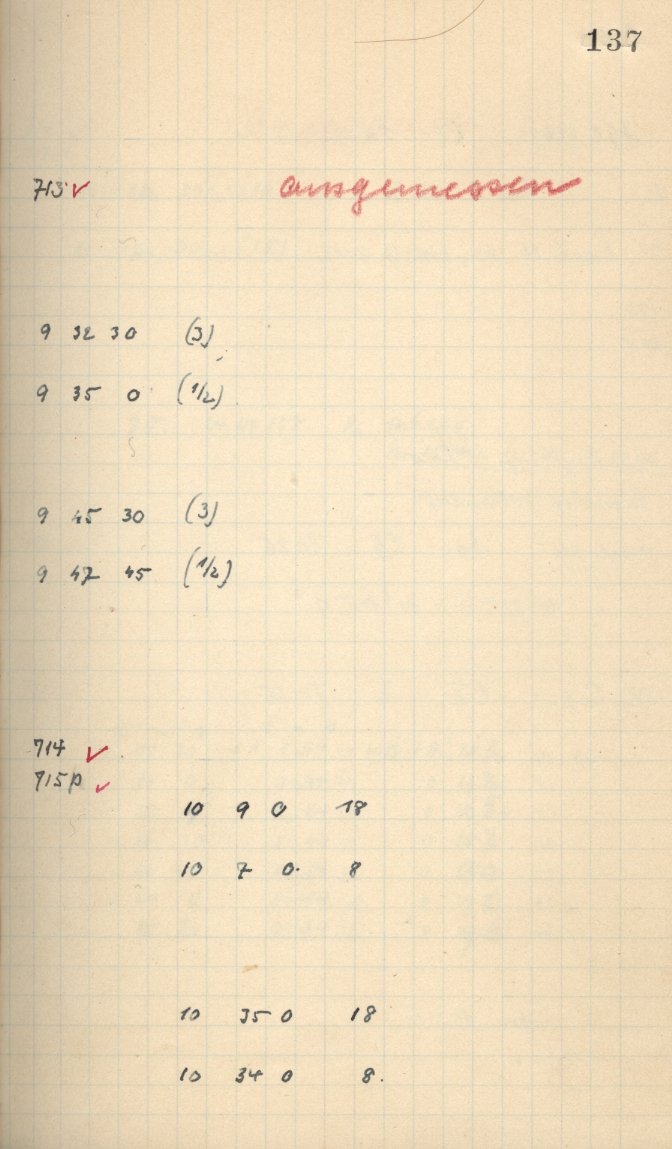 137
713 ✓ ausgemessen
9 32 30 (3)
9 35 0 (1/2)
9 45 30 (3)
9 47 45 (1/2)
714 ✓
715p ✓
10 9 0 18
10 7 0. 8
10 35 0 18
10 34 0 8.